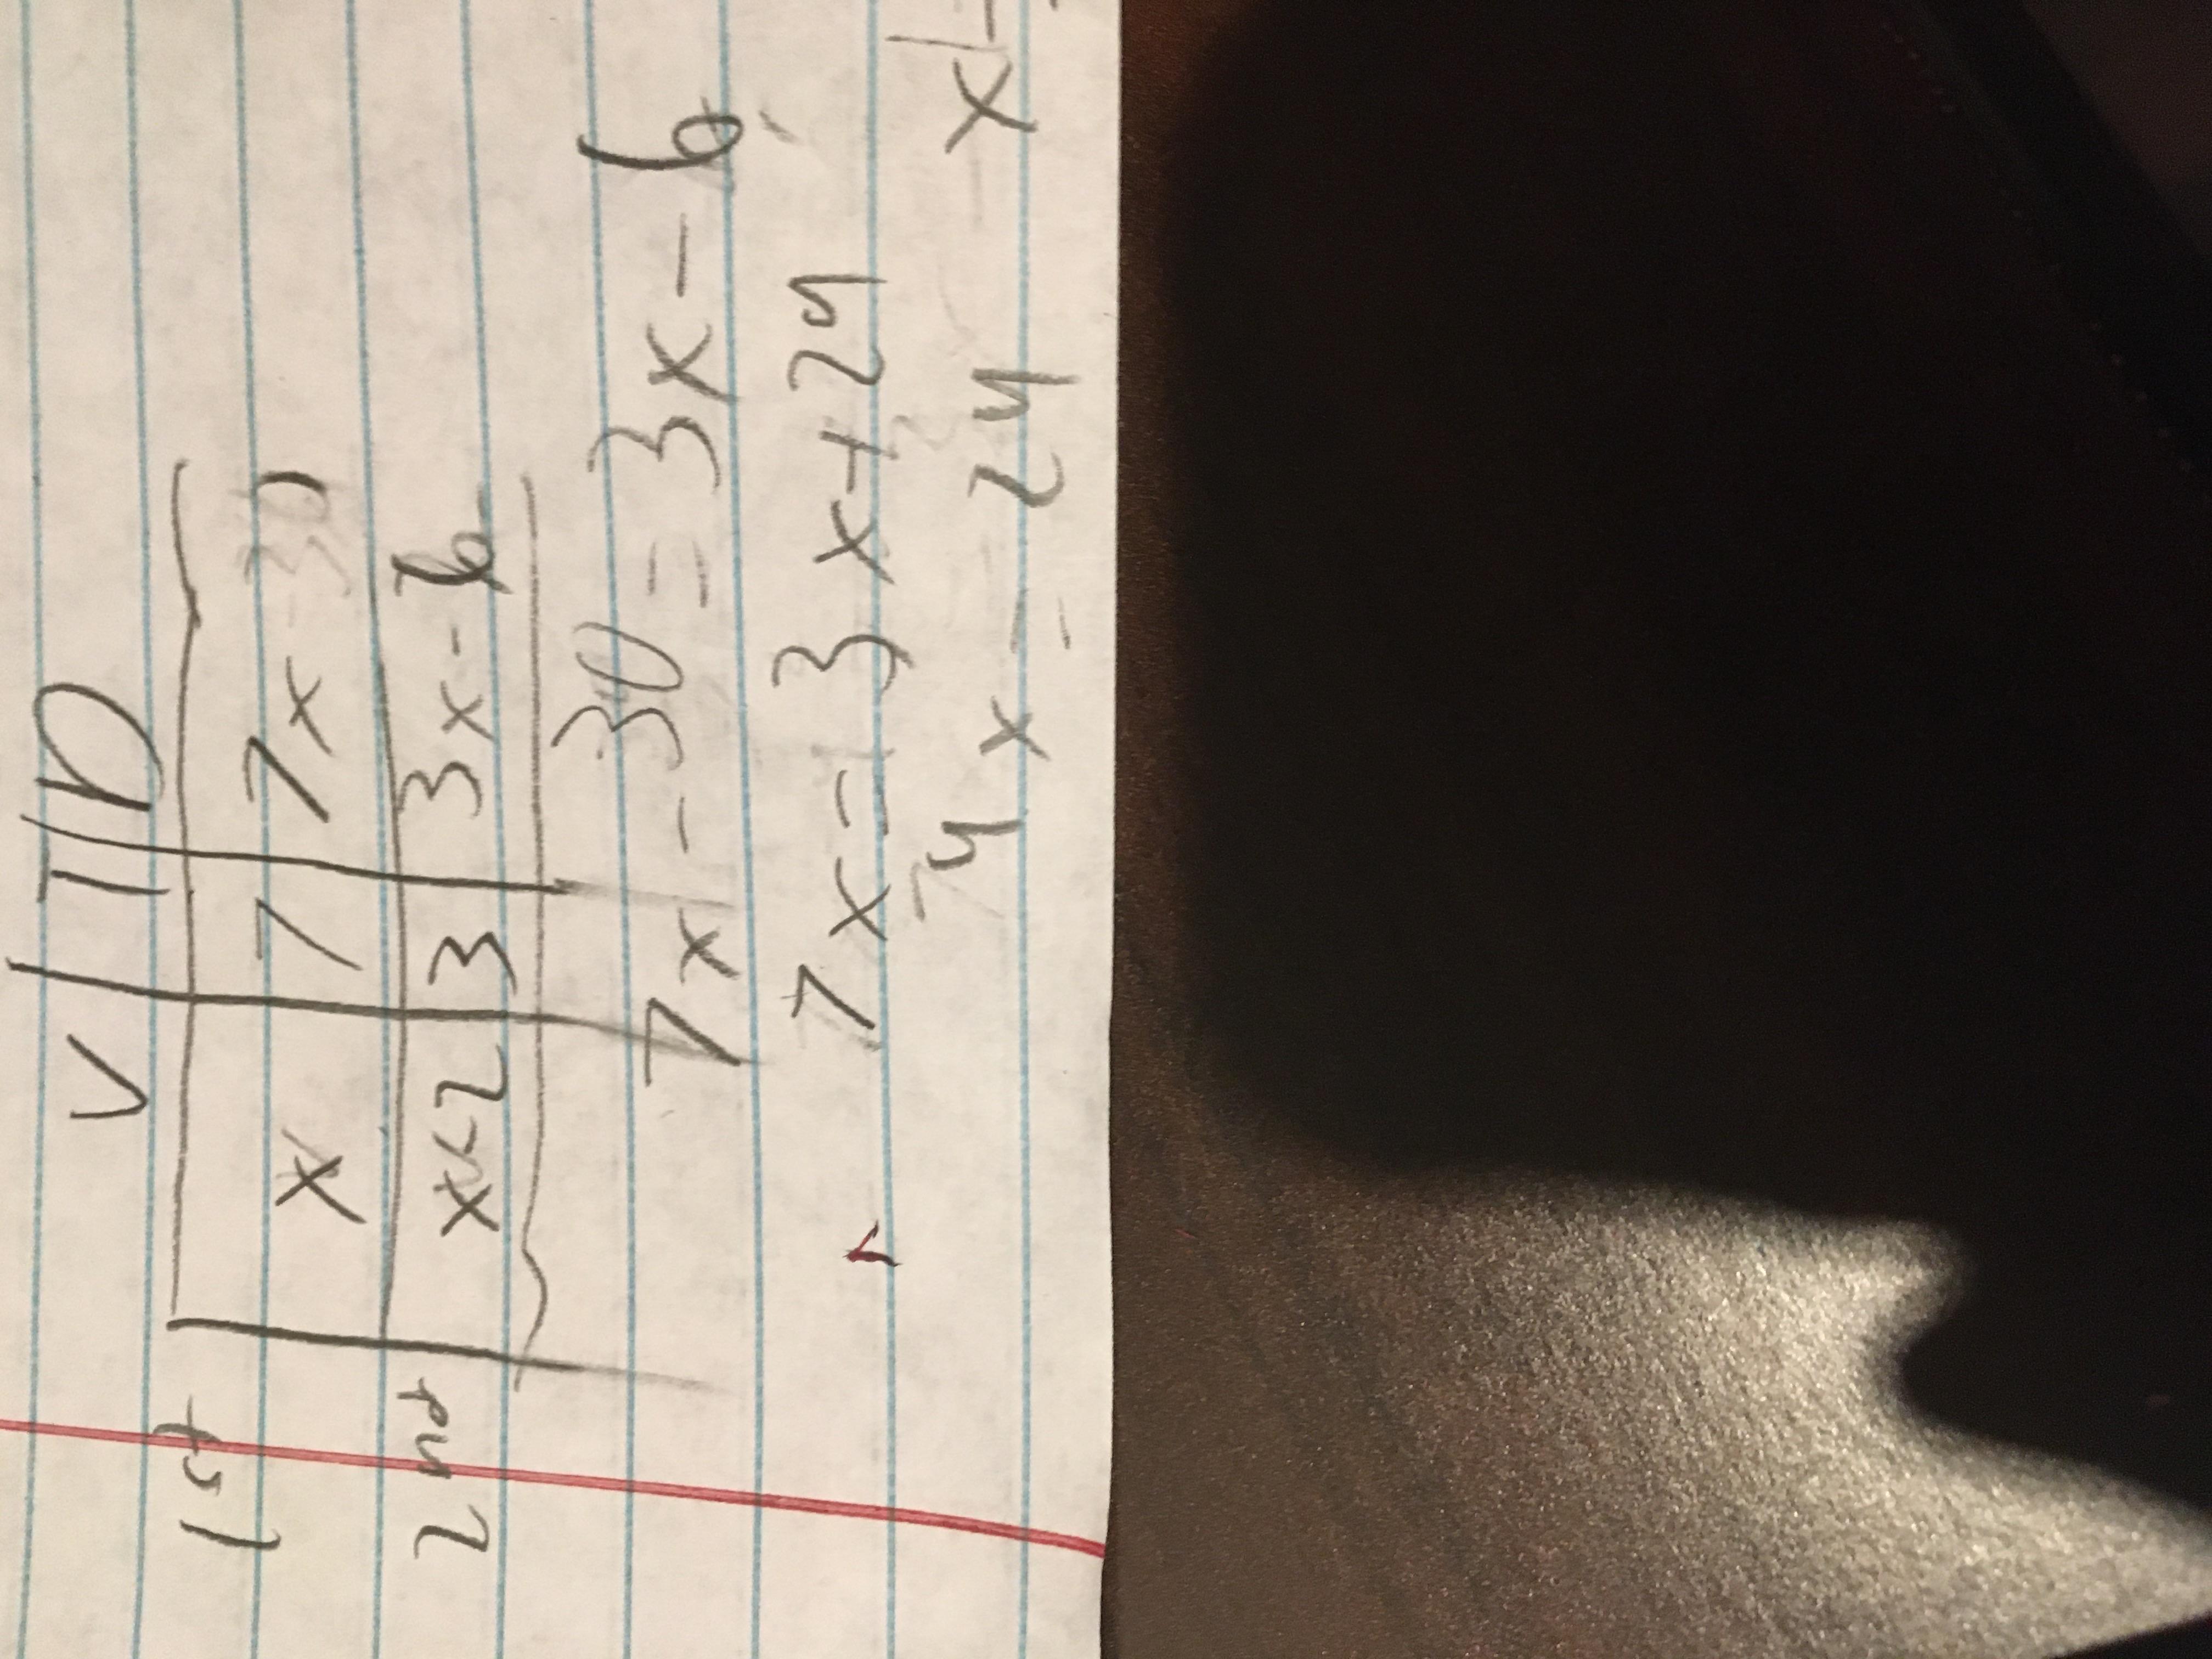 V T D
1st x 7 7x-30
2nd x-2 3 3x-6
7x-30=3x-6
7x=3x+24
4x=24 x=